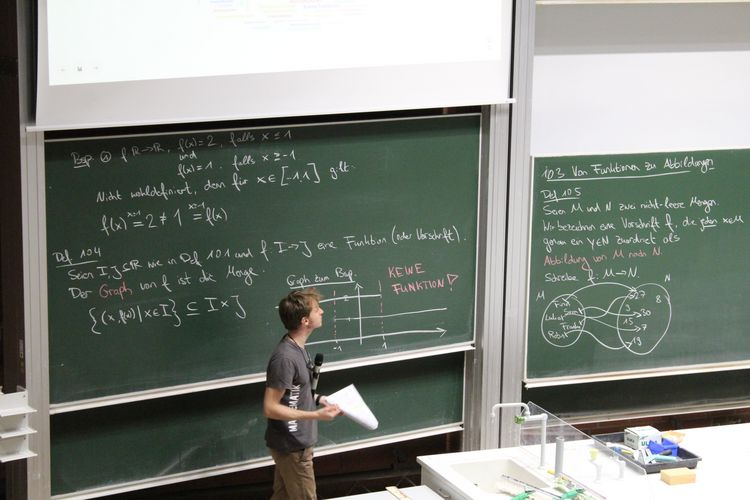 Bsp. ① f: R→R, f(x)=2, falls x ≤ 1
und
f(x)=1, falls x ≥ -1
Nicht wohldefiniert, denn für x ∈ [-1,1] gilt:
f(x) = 2 ≠ 1 = f(x)
Def 10.4
Seien I, J ⊆ R wie in Def 10.1 und f: I→J eine Funktion (oder Vorschrift).
Der Graph von f ist die Menge
{(x, f(x)) | x ∈ I} ⊆ I × J
Graph zum Bsp.
KEINE
FUNKTION!
2
-1 1
MATHEMATIK
10.3 Von Funktionen zu Abbildungen
Def 10.5
Seien M und N zwei nicht-leere Mengen.
Wir bezeichnen eine Vorschrift f, die jedem x∈M
genau ein y∈N zuordnet als
Abbildung von M nach N.
Schreibe f: M→N.
M
N
8
30
15
7
19